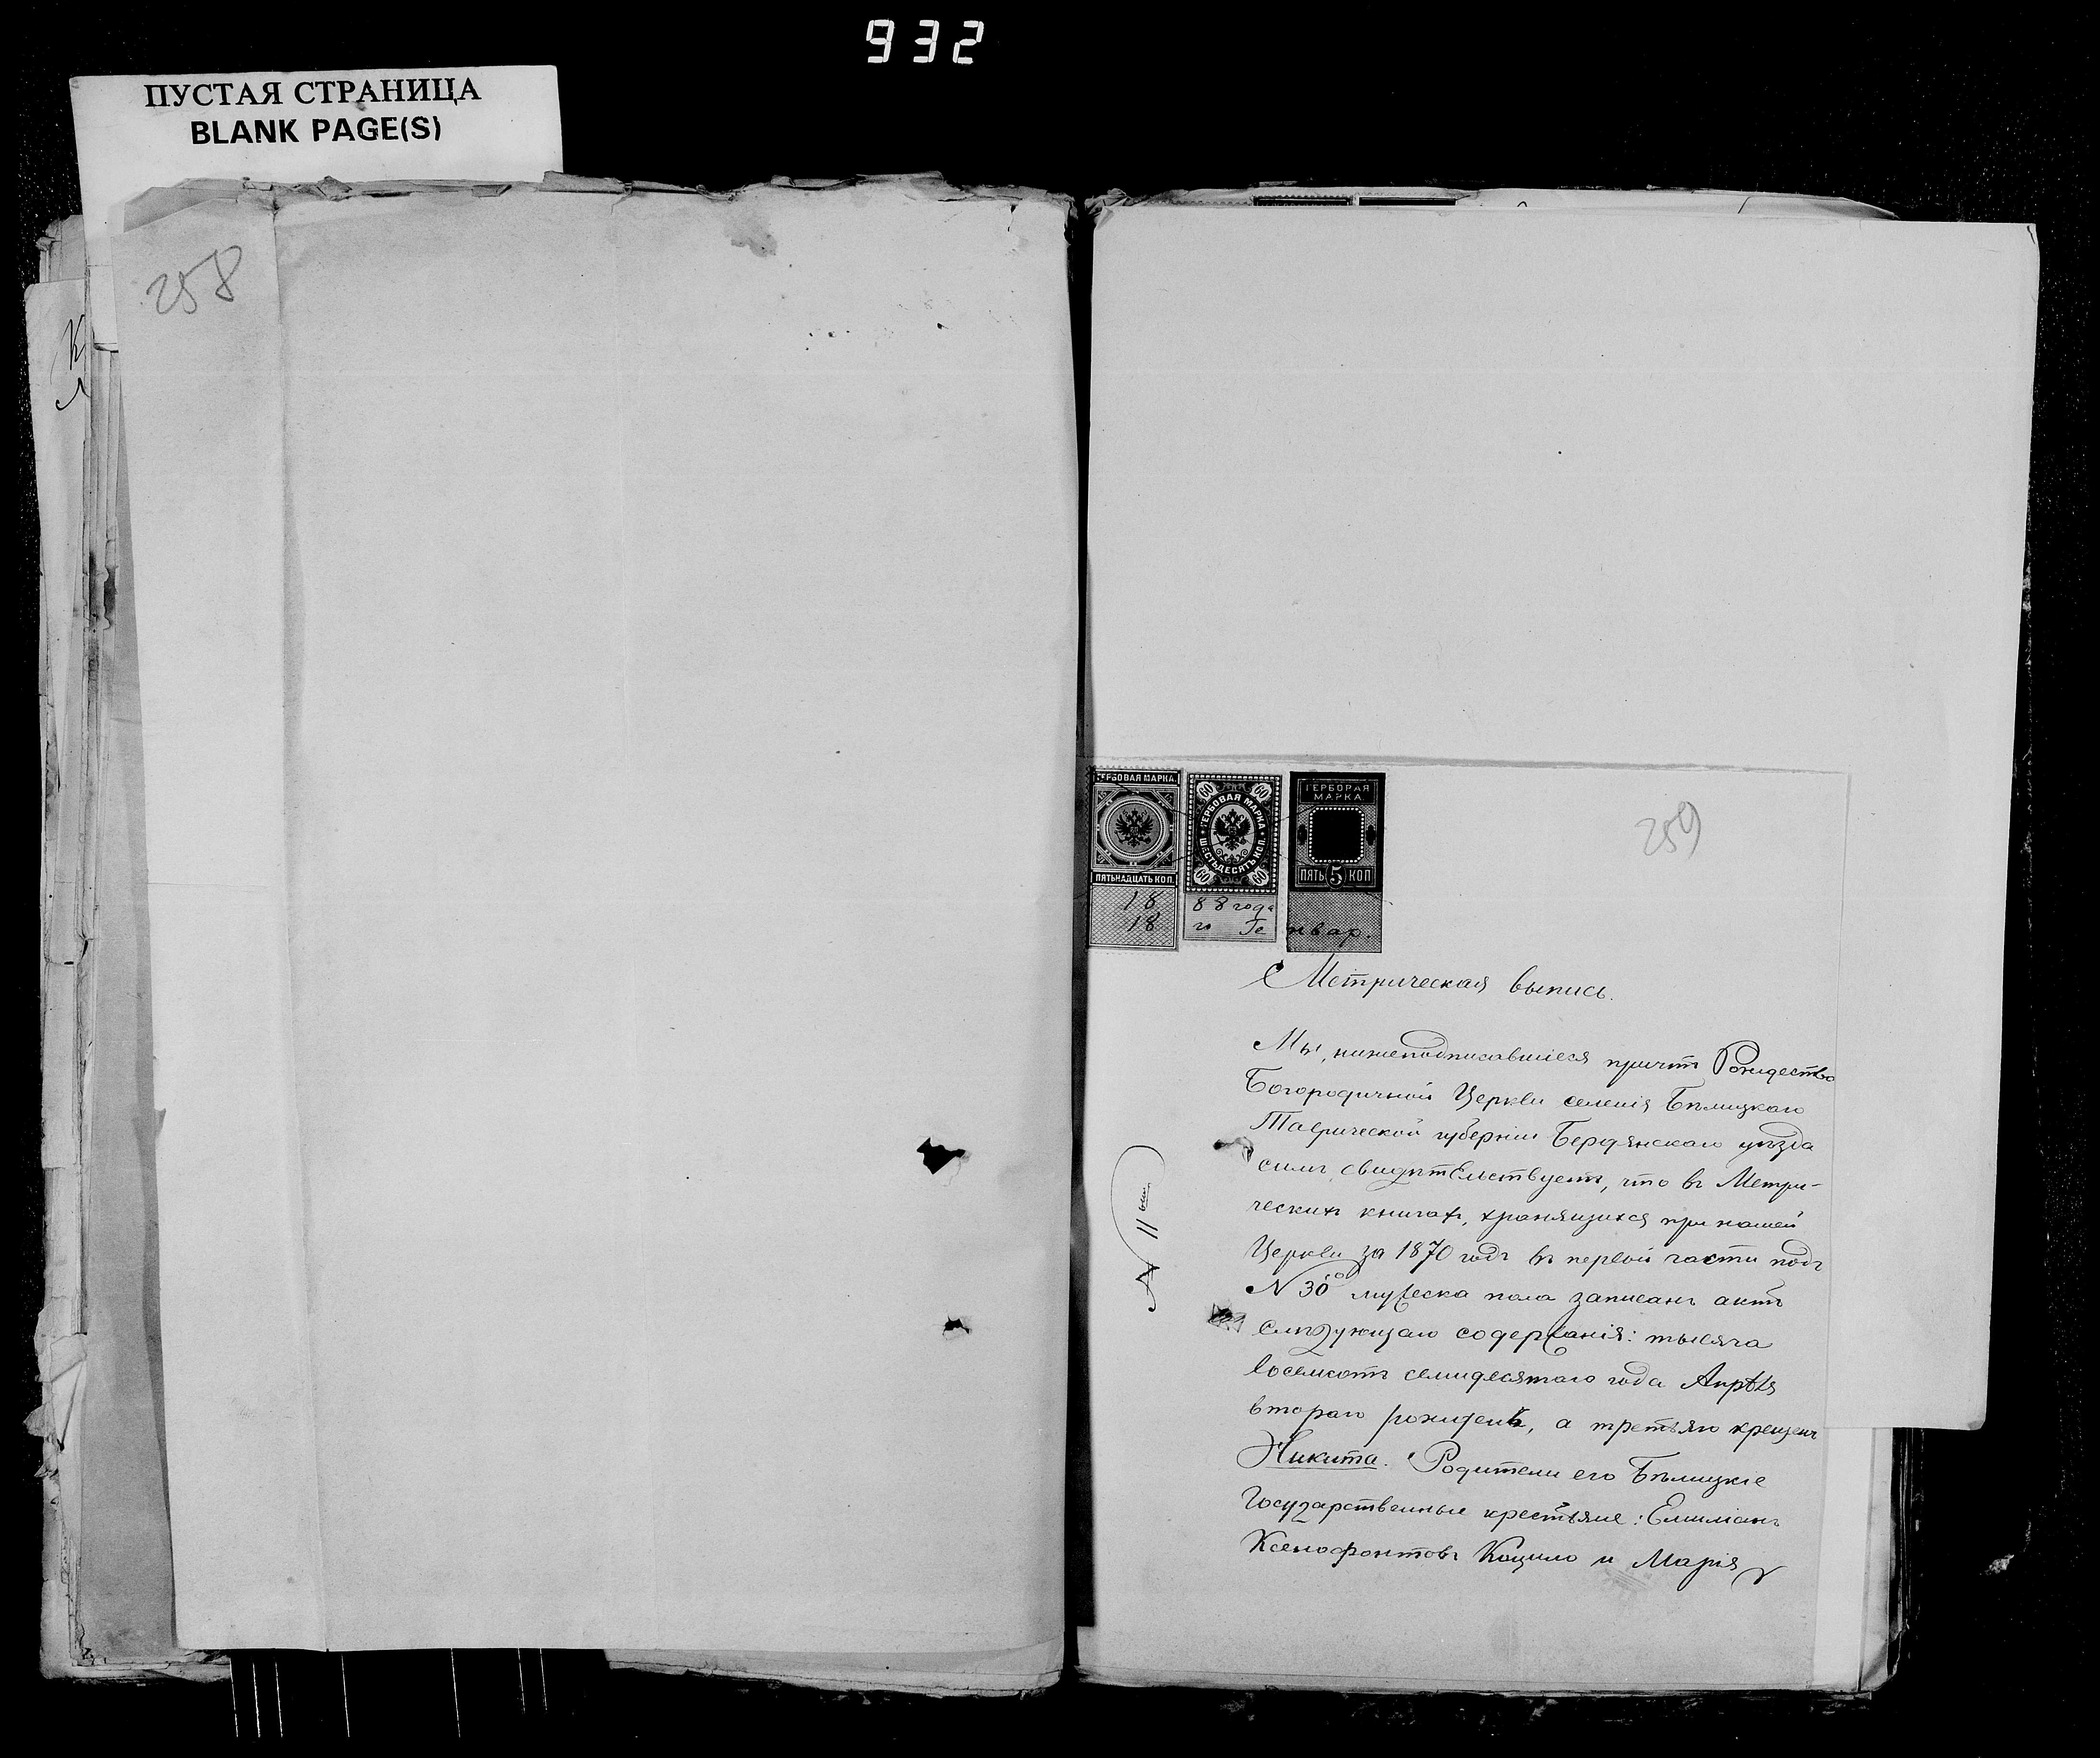 932
ПУСТАЯ СТРАНИЦА
BLANK PAGE(S)
258
259
ГЕРБОВАЯ МАРКА.
ПЯТЬНАДЦАТЬ КОП.
60 60
ГЕРБОВАЯ МАРКА
ШЕСТЬДЕСЯТЪ КОП.
60 60
ГЕРБОВАЯ
МАРКА
ПЯТЬ 5 КОП
18 88 года
18 го Генвар.
Метрическая выпись.
N 11
Мы, нижеподписавшіеся причтъ Рождество
Богородичной Церкви селенія Бѣлицкаго
Таврической губерніи Бердянскаго уѣзда
симъ свидѣтельствуемъ, что въ Метри-
ческихъ книгахъ, хранящихся при нашей
Церкви за 1870 годъ въ первой части подъ
N 30 мужеска пола записанъ актъ
слѣдующаго содержанія: тысяча
восемсотъ семидесятаго года Апрѣля
втораго рожденъ, а третьяго крещенъ
Никита. Родители его Бѣлицкіе
Государственные крестьяне: Емиліанъ
Ксенофонтовъ Коцило и Марія